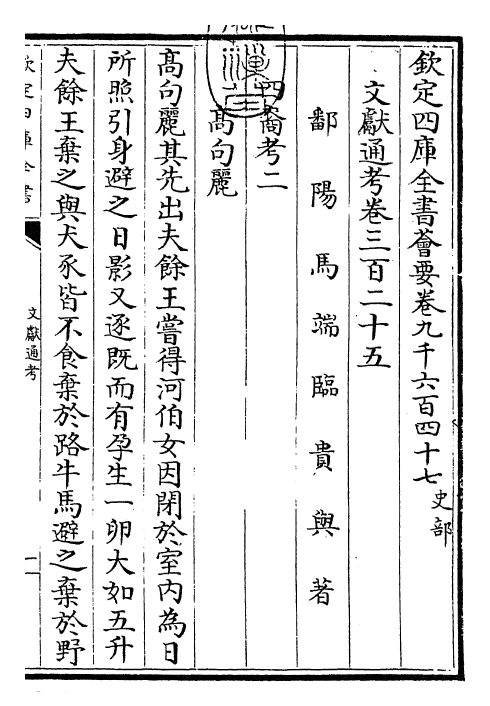 欽定四庫全書薈要卷九千六百四十七史部
文獻通考卷三百二十五
鄱陽馬端臨貴與著
四裔考二
高句麗
高句麗其先出夫餘王嘗得河伯女因閉於室内為日
所照引身避之日影又逐既而有孕生一卵大如五升
夫餘王棄之與犬豕皆不食棄於路牛馬避之棄於野
文獻通考
一